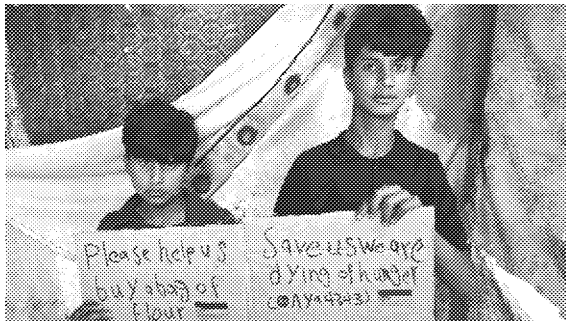 Please help us
buy a bag of
flour
Save us we are
dying of hunger